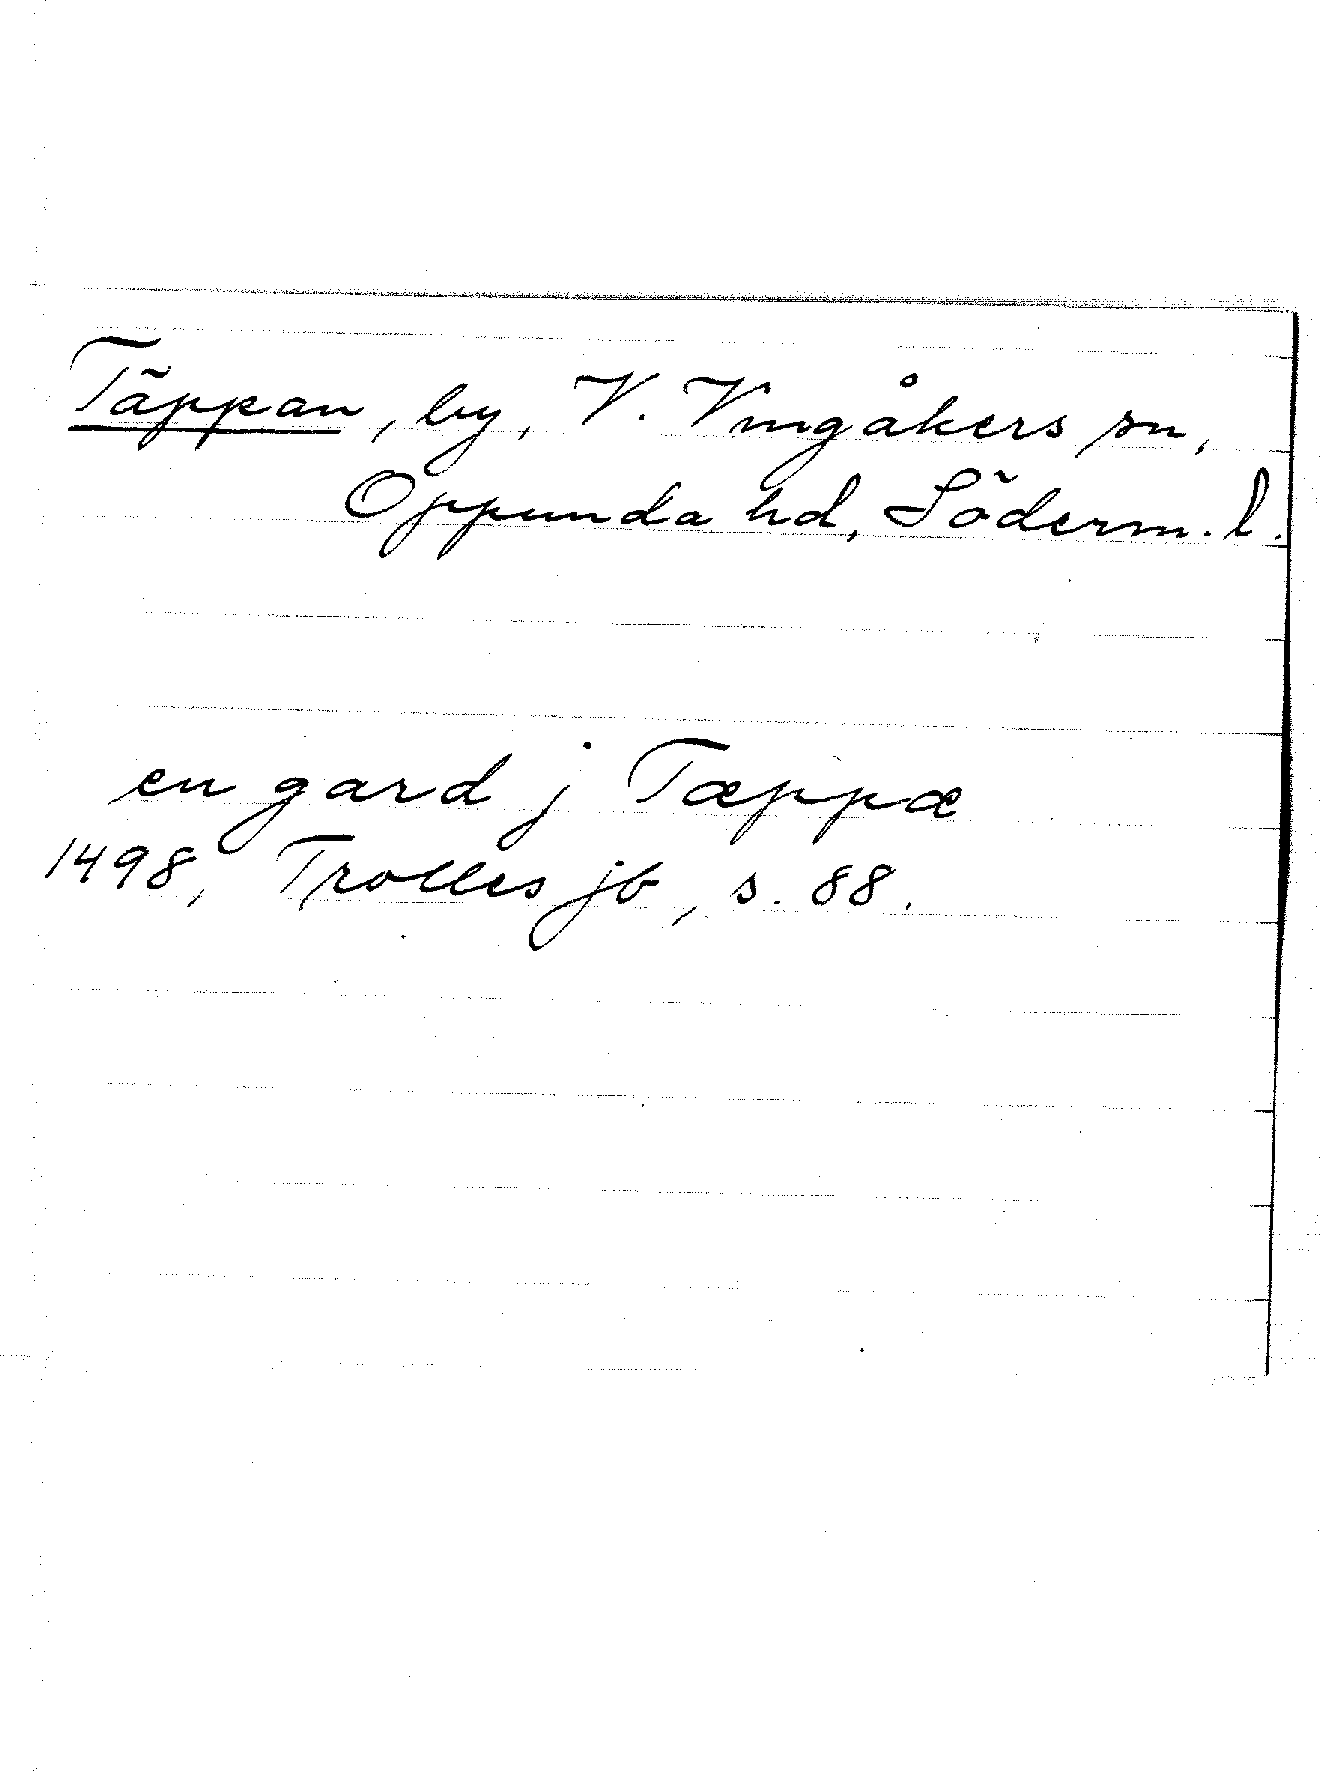 Täppan, by, V. Vingåkers sn,
Oppunda hd, Söderm. l.
en gard j Tæppæ
1498, Trolles jb, s. 88.